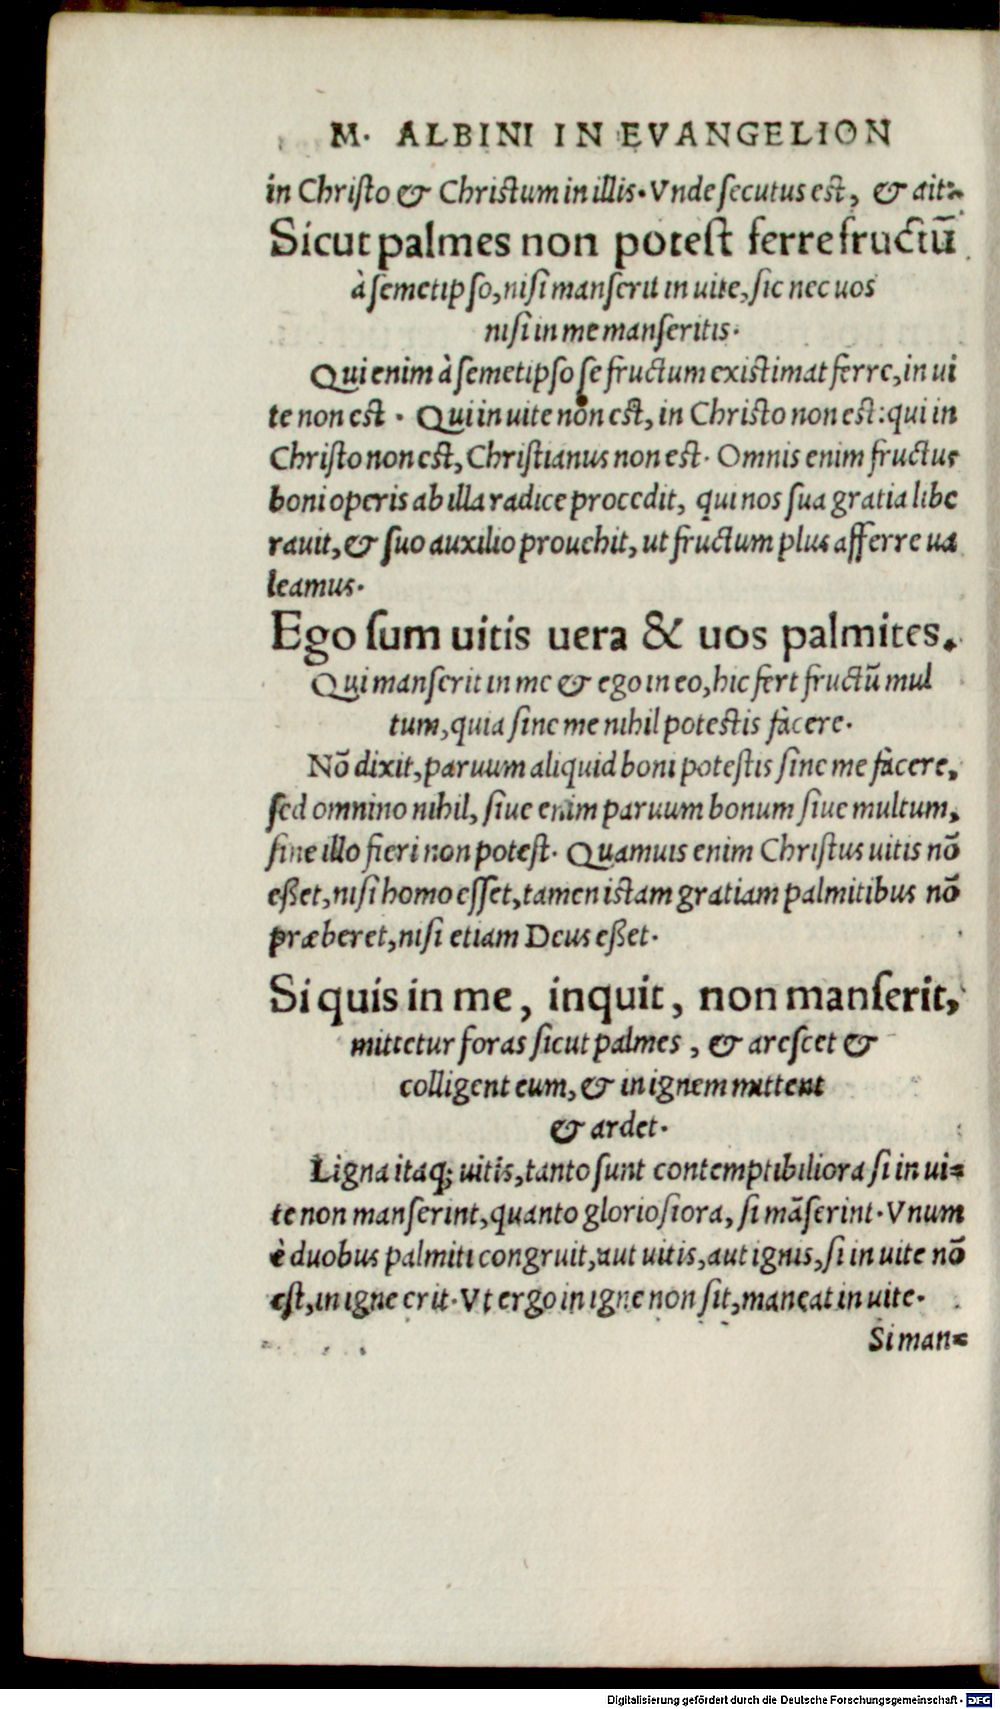 M. ALBINI IN EVANGELION
in Christo & Christum in illis. Vnde secutus est, & ait:
Sicut palmes non potest ferre fructū
à semetipso, nisi manserit in uite, sic nec uos
nisi in me manseritis.
Qui enim à semetipso se fructum existimat ferre, in ui
te non est. Qui in uite non est, in Christo non est: qui in
Christo non est, Christianus non est. Omnis enim fructus
boni operis ab illa radice procedit, qui nos sua gratia libe
rauit, & suo auxilio prouehit, ut fructum plus afferre ua
leamus.
Ego sum uitis uera & uos palmites.
Qui manserit in me & ego in eo, hic fert fructū mul
tum, quia sine me nihil potestis facere.
Nō dixit, paruum aliquid boni potestis sine me facere,
sed omnino nihil, siue enim paruum bonum siue multum,
sine illo fieri non potest. Quamuis enim Christus uitis nō
eßet, nisi homo esset, tamen istam gratiam palmitibus nō
præberet, nisi etiam Deus eßet.
Si quis in me, inquit, non manserit,
mittetur foras sicut palmes, & arescet &
colligent eum, & in ignem mittent
& ardet.
Ligna itaq; uitis, tanto sunt contemptibiliora si in ui=
te non manserint, quanto gloriosiora, si māserint. Vnum
è duobus palmiti congruit, aut uitis, aut ignis, si in uite nō
est, in igne erit. Vt ergo in igne non sit, maneat in uite.
Si man=
Digitalisierung gefördert durch die Deutsche Forschungsgemeinschaft - DFG